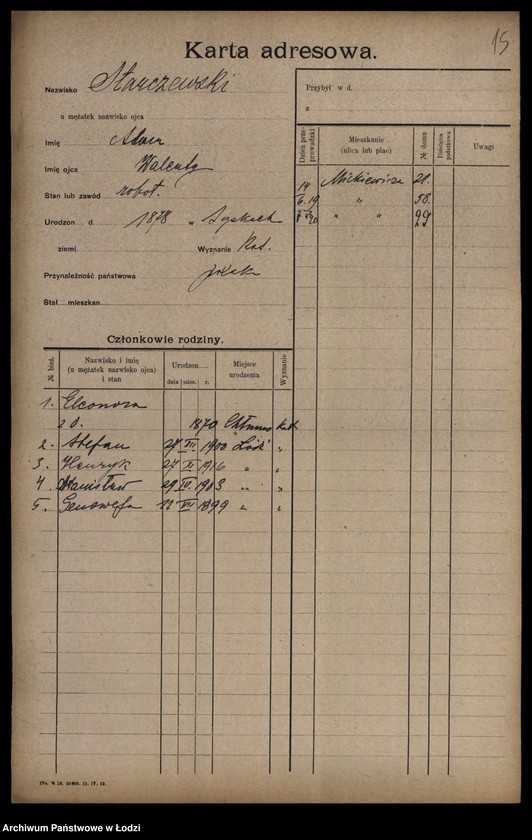 15
Karta adresowa.
Nazwisko Starczewski
u mężatek nazwisko ojca
Imię Adam
Imię ojca Walenty
Stan lub zawód robot.
Urodzon d. 1878 w
ziemi Wyznanie Kat.
Przynależność państwowa
Stał mieszkan.
Przybył w d.
z
Dzień przeprowadzki Mieszkanie (ulica lub plac) № domu Dzielnica podatkowa Uwagi
14 Mickiewicza 21.
6. 19 " 58.
" " 29
Członkowie rodziny.
№ bież. Nazwisko i imię (u mężatek nazwisko ojca) i stan Urodzon dnia mies. r. Miejsce urodzenia. Wyznanie
1. Eleonora
z d. 1870 kat.
2. Stefan 29 VII. 1900 Łódź "
3. Henryk 27 XI 1916 " "
4 Stanisław 29 IV. 1903 " "
5. Genowefa 11 VII 1899 " "
Archiwum Państwowe w Łodzi